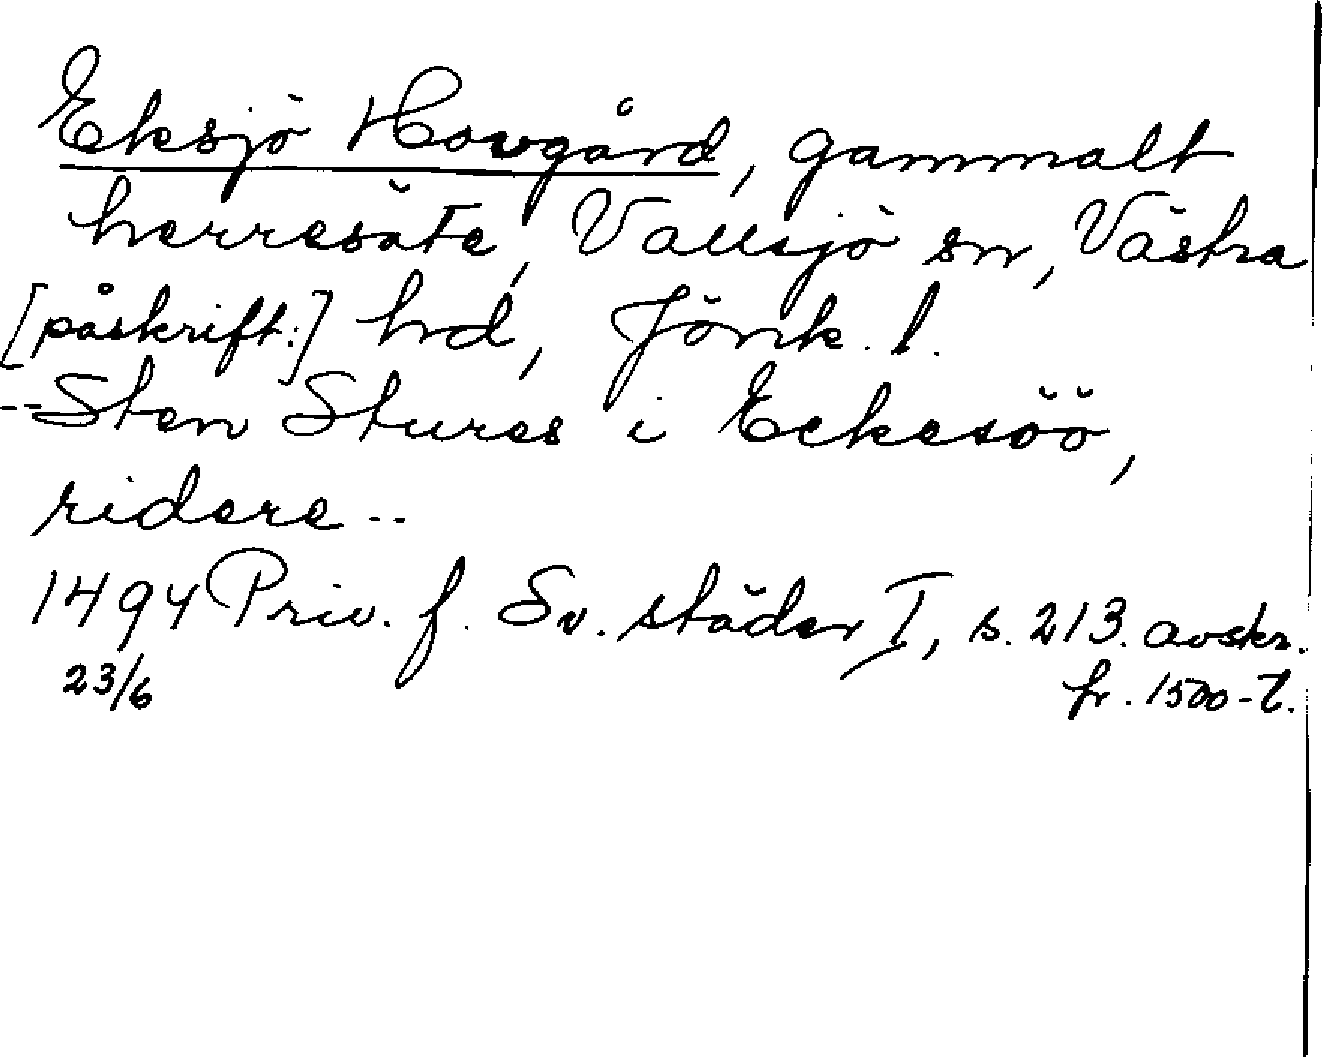 Eksjö Hovgård, gammalt
herresäte, Vallsjö sn, Västra
[påskrift:] hd, Jönk. l.
--Sten Stures i Eckesöö,
ridere--
1494 Priv. f. Sv. städer I, s. 213. avskr.
23/6 fr. 1500-t.